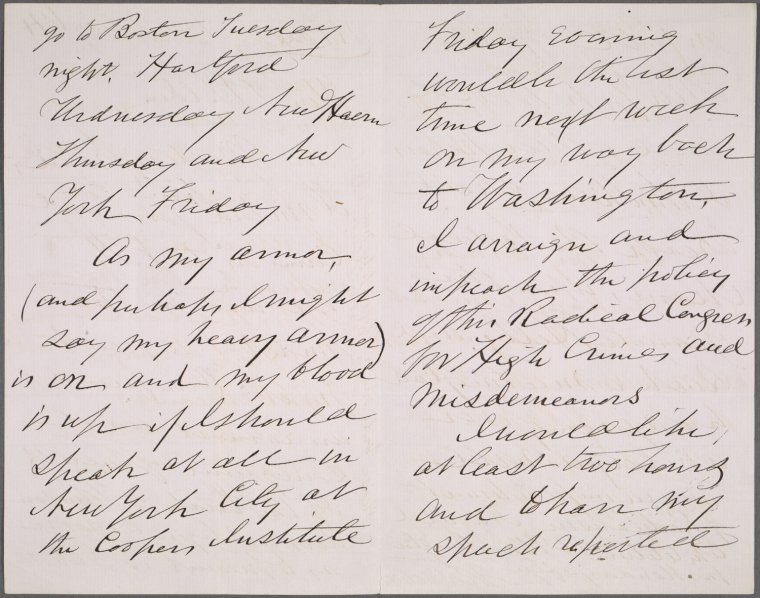 go to Boston Tuesday
night. Hartford
Wednesday New Haven
Thursday and New
York Friday
As my armor,
(and perhaps I might
say my heavy armor)
is on and my blood
is up if I should
speak at all in
New York City at
the Coopers Institute
Friday evening
would be the best
time next week
on my way back
to Washington.
I arraign and
impeach the policy
of this Radical Congress
for High Crimes and
Misdemeanors
I would like,
at least two hours
and to have my
speech reported